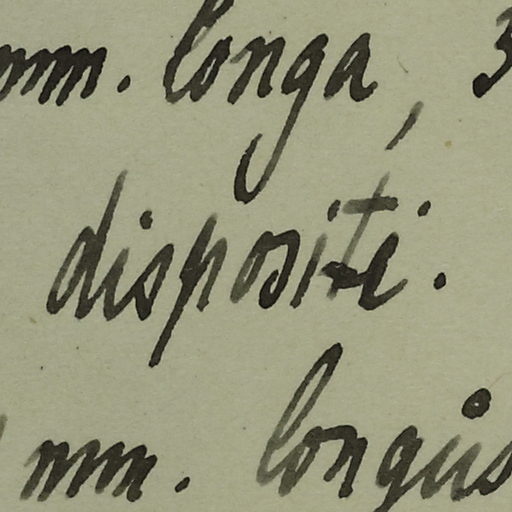 mm. longa, 3
dispositi.
mm. longus